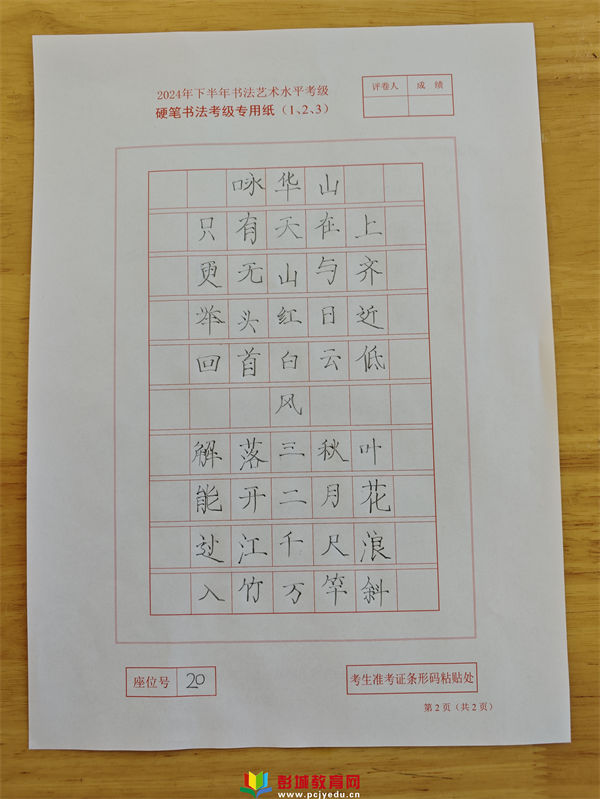 2024年下半年书法艺术水平考级
硬笔书法考级专用纸（1、2、3）
评卷人 成绩
咏华山
只有天在上
更无山与齐
举头红日近
回首白云低
风
解落三秋叶
能开二月花
过江千尺浪
入竹万竿斜
座位号 20
考生准考证条形码粘贴处
第2页（共2页）
彭城教育网
www.pcjyedu.cn